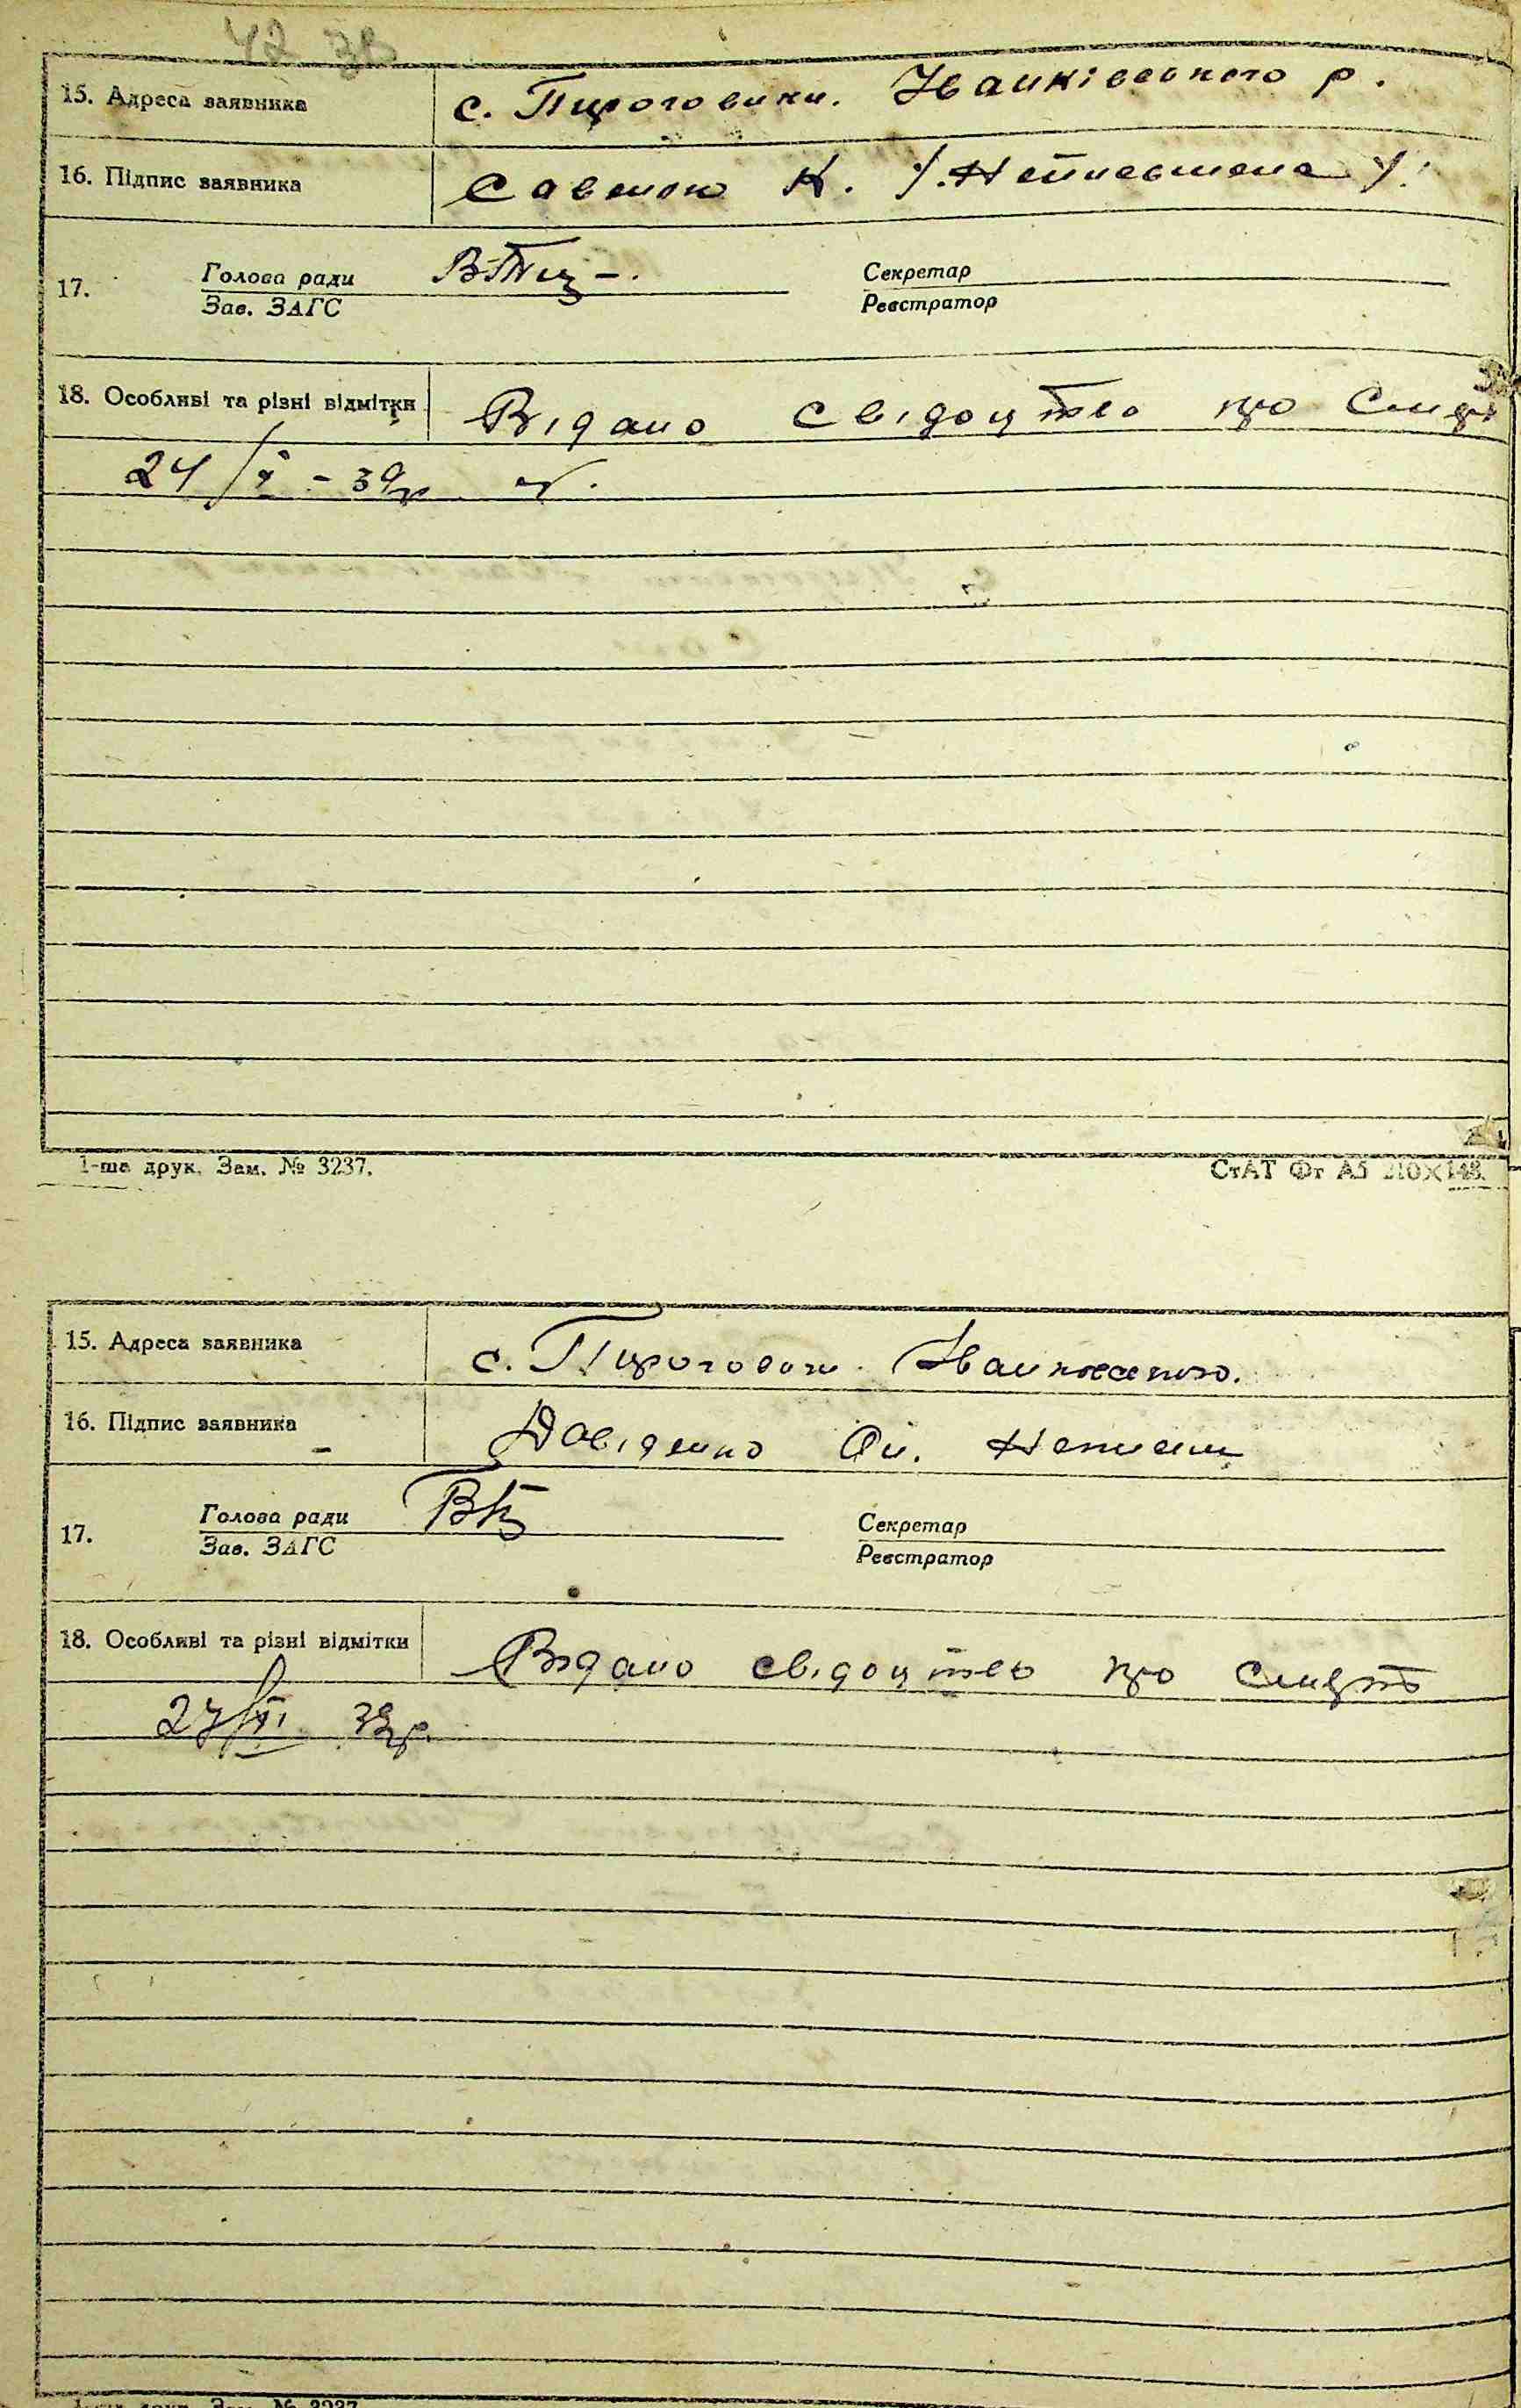 42 зв
15. Адреса заявника с. Пироговичи. Іванківського р.
16. Підпис заявника Савенко К. /.Неписьмена /.
17. Голова ради Секретар
Зав. ЗАГС Реєстратор
18. Особливі та різні відмітки Видано свідоцтво про смерт
24/X - 39р
1-ша друк. Зам. № 3237. СтАТ Фт А5 210×148.
15. Адреса заявника с. Пироговичи. Іванківського.
16. Підпис заявника Давіденко Ол. Неписьм
17. Голова ради Секретар
Зав. ЗАГС Реєстратор
18. Особливі та різні відмітки Видано свідоцтво про смерть
27/XI 39р.